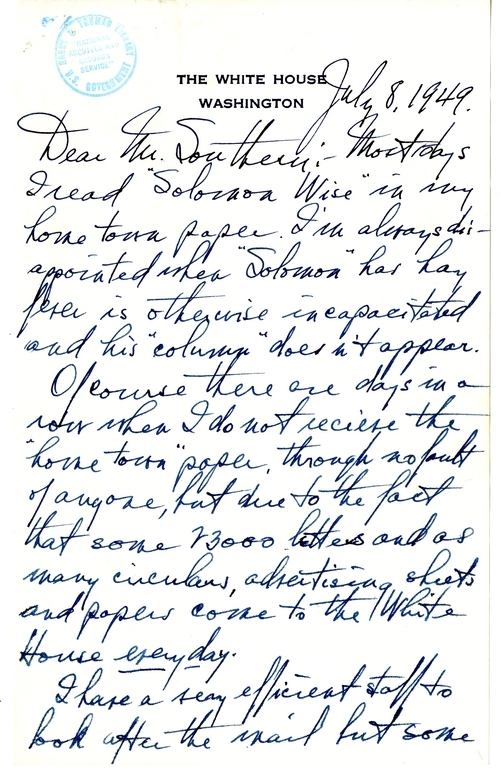 HARRY S. TRUMAN LIBRARY
"NATIONAL
ARCHIVES AND
RECORDS
SERVICE"
U.S. GOVERNMENT
THE WHITE HOUSE
WASHINGTON
July 8, 1949.
Dear Mr. Southern:- Most days
I read "Solomon Wise" in my
home town paper. I'm always dis-
appointed when "Solomon" has hay
fever is otherwise incapacitated
and his "column" does n't appear.
Of course there are days in a
row when I do not recieve the
"home town" paper, through no fault
of anyone, but due to the fact
that some 23000 letters and as
many circulars, advertising sheets
and papers come to the White
House every day.
I have a very efficient staff to
look after the mail but some